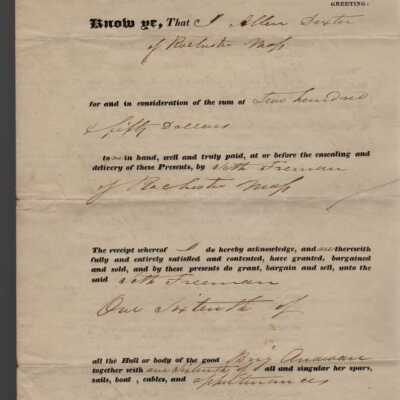 GREETING:
Know ye, That I Allen Dexter
of Rochester Mass
for and in consideration of the sum of Two hundred
& fifty Dollars
to me in hand, well and truly paid, at or before the ensealing and
delivery of these Presents, by Seth Freeman
of Rochester Mass
The receipt whereof I do hereby acknowledge, and am therewith
fully and entirely satisfied and contented, have granted, bargained
and sold, and by these presents do grant, bargain and sell, unto the
said Seth Freeman
One Sixteenth of
all the Hull or body of the good Brig Annawan
together with one sixteenth of all and singular her spars,
sails, boat , cables, and appurtenances